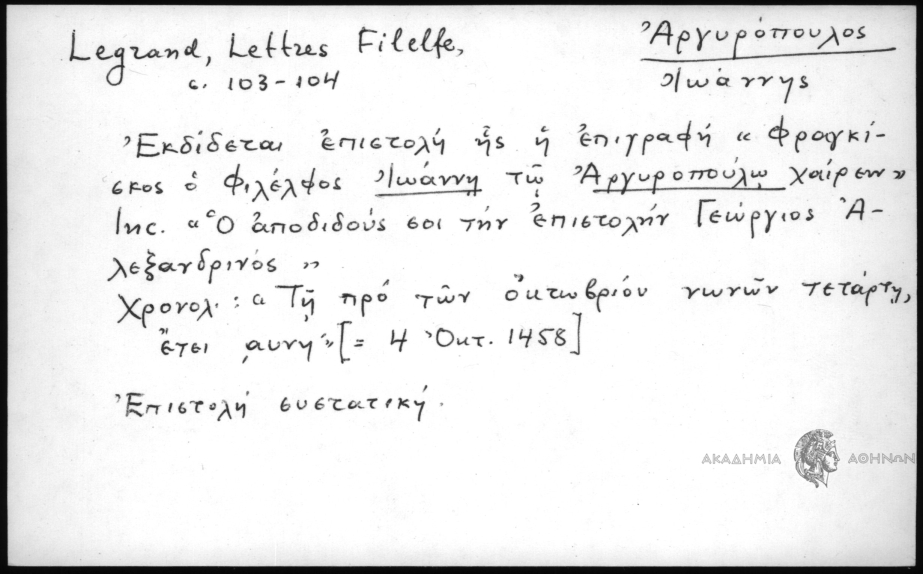 Legrand, Lettres Filelfe,
σ. 103-104
Ἀργυρόπουλος
Ἰωάννης
Ἐκδίδεται ἐπιστολή ἧς ἡ ἐπιγραφή « Φραγκί-
σκος ὁ Φιλέλφος Ἰωάννῃ τῷ Ἀργυροπούλῳ χαίρειν»
Inc. « Ὁ ἀποδιδούς σοι τήν ἐπιστολήν Γεώργιος Ἀ-
λεξανδρινός »
Χρονολ. : « Τῇ πρό τῶν ὀκτωβρίου νωνῶν τετάρτῃ,
ἔτει ͵αυνη΄» [= 4 Ὀκτ. 1458]
Ἐπιστολή συστατική.
ΑΚΑΔΗΜΙΑ ΑΘΗΝΩΝ